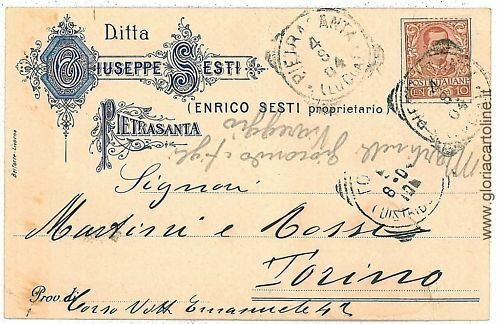 Ditta
GIUSEPPE SESTI
(ENRICO SESTI proprietario)
PIETRASANTA
PIETRASANTA
4
04
(LUCCA)
POSTE ITALIANE
CENTESIMI 10
Viareggio
Signori
Martini e Rossi
Torino
Prov. di Corso Vitt Emanuele 42
www.gloriacartoline.it